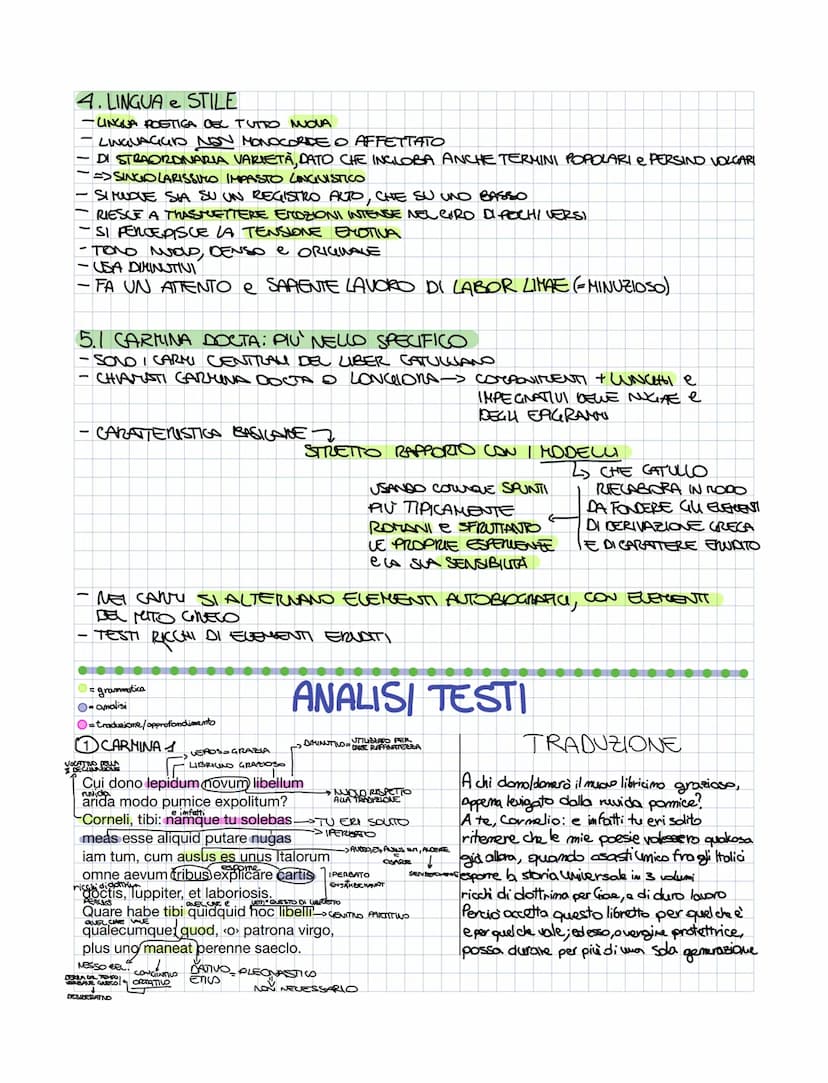 4. LINGUA e STILE
- LINGUA POETICA DEL TUTTO NUOVA
- LINGUAGGIO NON MONOCORDE O AFFETTATO
- DI STRAORDINARIA VARIETÀ, DATO CHE INGLOBA ANCHE TERMINI POPOLARI e PERSINO VOLGARI
- => SINGOLARISSIMO IMPASTO LINGUISTICO
- SI MUOVE SIA SU UN REGISTRO ALTO, CHE SU UNO BASSO
- RIESCE A TRASMETTERE EMOZIONI INTENSE NEL GIRO DI POCHI VERSI
- SI PERCEPISCE LA TENSIONE EMOTIVA
- TONO NUOVO, DENSO e ORIGINALE
- USA DIMINUTIVI
- FA UN ATTENTO e SAPIENTE LAVORO DI LABOR LIMAE (= MINUZIOSO)
5. I CARMINA DOCTA: PIU' NELLO SPECIFICO
- SONO I CARMI CENTRALI DEL LIBER CATULLIANO
- CHIAMATI CARMINA DOCTA O LONGIORA → COMPONIMENTI + LUNGHI e
IMPEGNATIVI DELLE NUGAE e
DEGLI EPIGRAMMI
- CARATTERISTICA BASILARE
STRETTO RAPPORTO CON I MODELLI
CHE CATULLO
RIELABORA IN MODO
DA FONDERE GLI ELEMENTI
DI DERIVAZIONE GRECA
E DI CARATTERE ERUDITO
USANDO COMUNQUE SPUNTI
PIÙ TIPICAMENTE
ROMANI e SFRUTTANTO
LE PROPRIE ESPERIENZE
e LA SUA SENSIBILITÀ
- NEI CARMI SI ALTERNANO ELEMENTI AUTOBIOGRAFICI, CON ELEMENTI
DEL MITO GRECO
- TESTI RICCHI DI ELEMENTI ERUDITI
ANALISI TESTI
= grammatica
= analisi
= traduzione/approfondimento
1 CARMINA 1
VEPOS = GRAZIA
LIBRICINO GRAZIOSO
DIMINUTIVO = UTILIZZATO PER
DARE RAFFINATEZZA
VOCATIVO DELLA
2 DECLINAZIONE
Cui dono lepidum novum libellum
ruvida
NUOVO RISPETTO
ALLA TRADIZIONE
arida modo pumice expolitum?
e infatti
Corneli, tibi: namque tu solebas → TU ERI SOLITO
meas esse aliquid putare nugas → IPERBATO
iam tum, cum ausus es unus Italorum
esporre
omne aevum tribus explicare cartis
IPERBATO
ricchi di dottrina
doctis, Iuppiter, et laboriosis.
QUESTO DI LIBRETTO
Quare habe tibi quidquid hoc libelli → GENITIVO PARTITIVO
QUEL CHE VALE
qualecumque; quod, ‹o› patrona virgo,
plus uno maneat perenne saeclo.
NESSO REL.
CONGIUNTIVO
OTTATIVO
DATIVO = PLEONASTICO
ETICO
NON NECESSARIO
TRADUZIONE
A chi dono/donerò il nuovo libricino grazioso,
Appena levigato dalla ruvida pomice?
A te, Cornelio: e infatti tu eri solito
ritenere che le mie poesie valessero qualcosa
già allora, quando osasti unico fra gli Italici
esporre la storia universale in 3 volumi
ricchi di dottrina per Giove, e di duro lavoro
Perciò accetta questo libretto per quel che è
e per quel che vale; ed esso, o vergine protettrice,
possa durare per più di una sola generazione